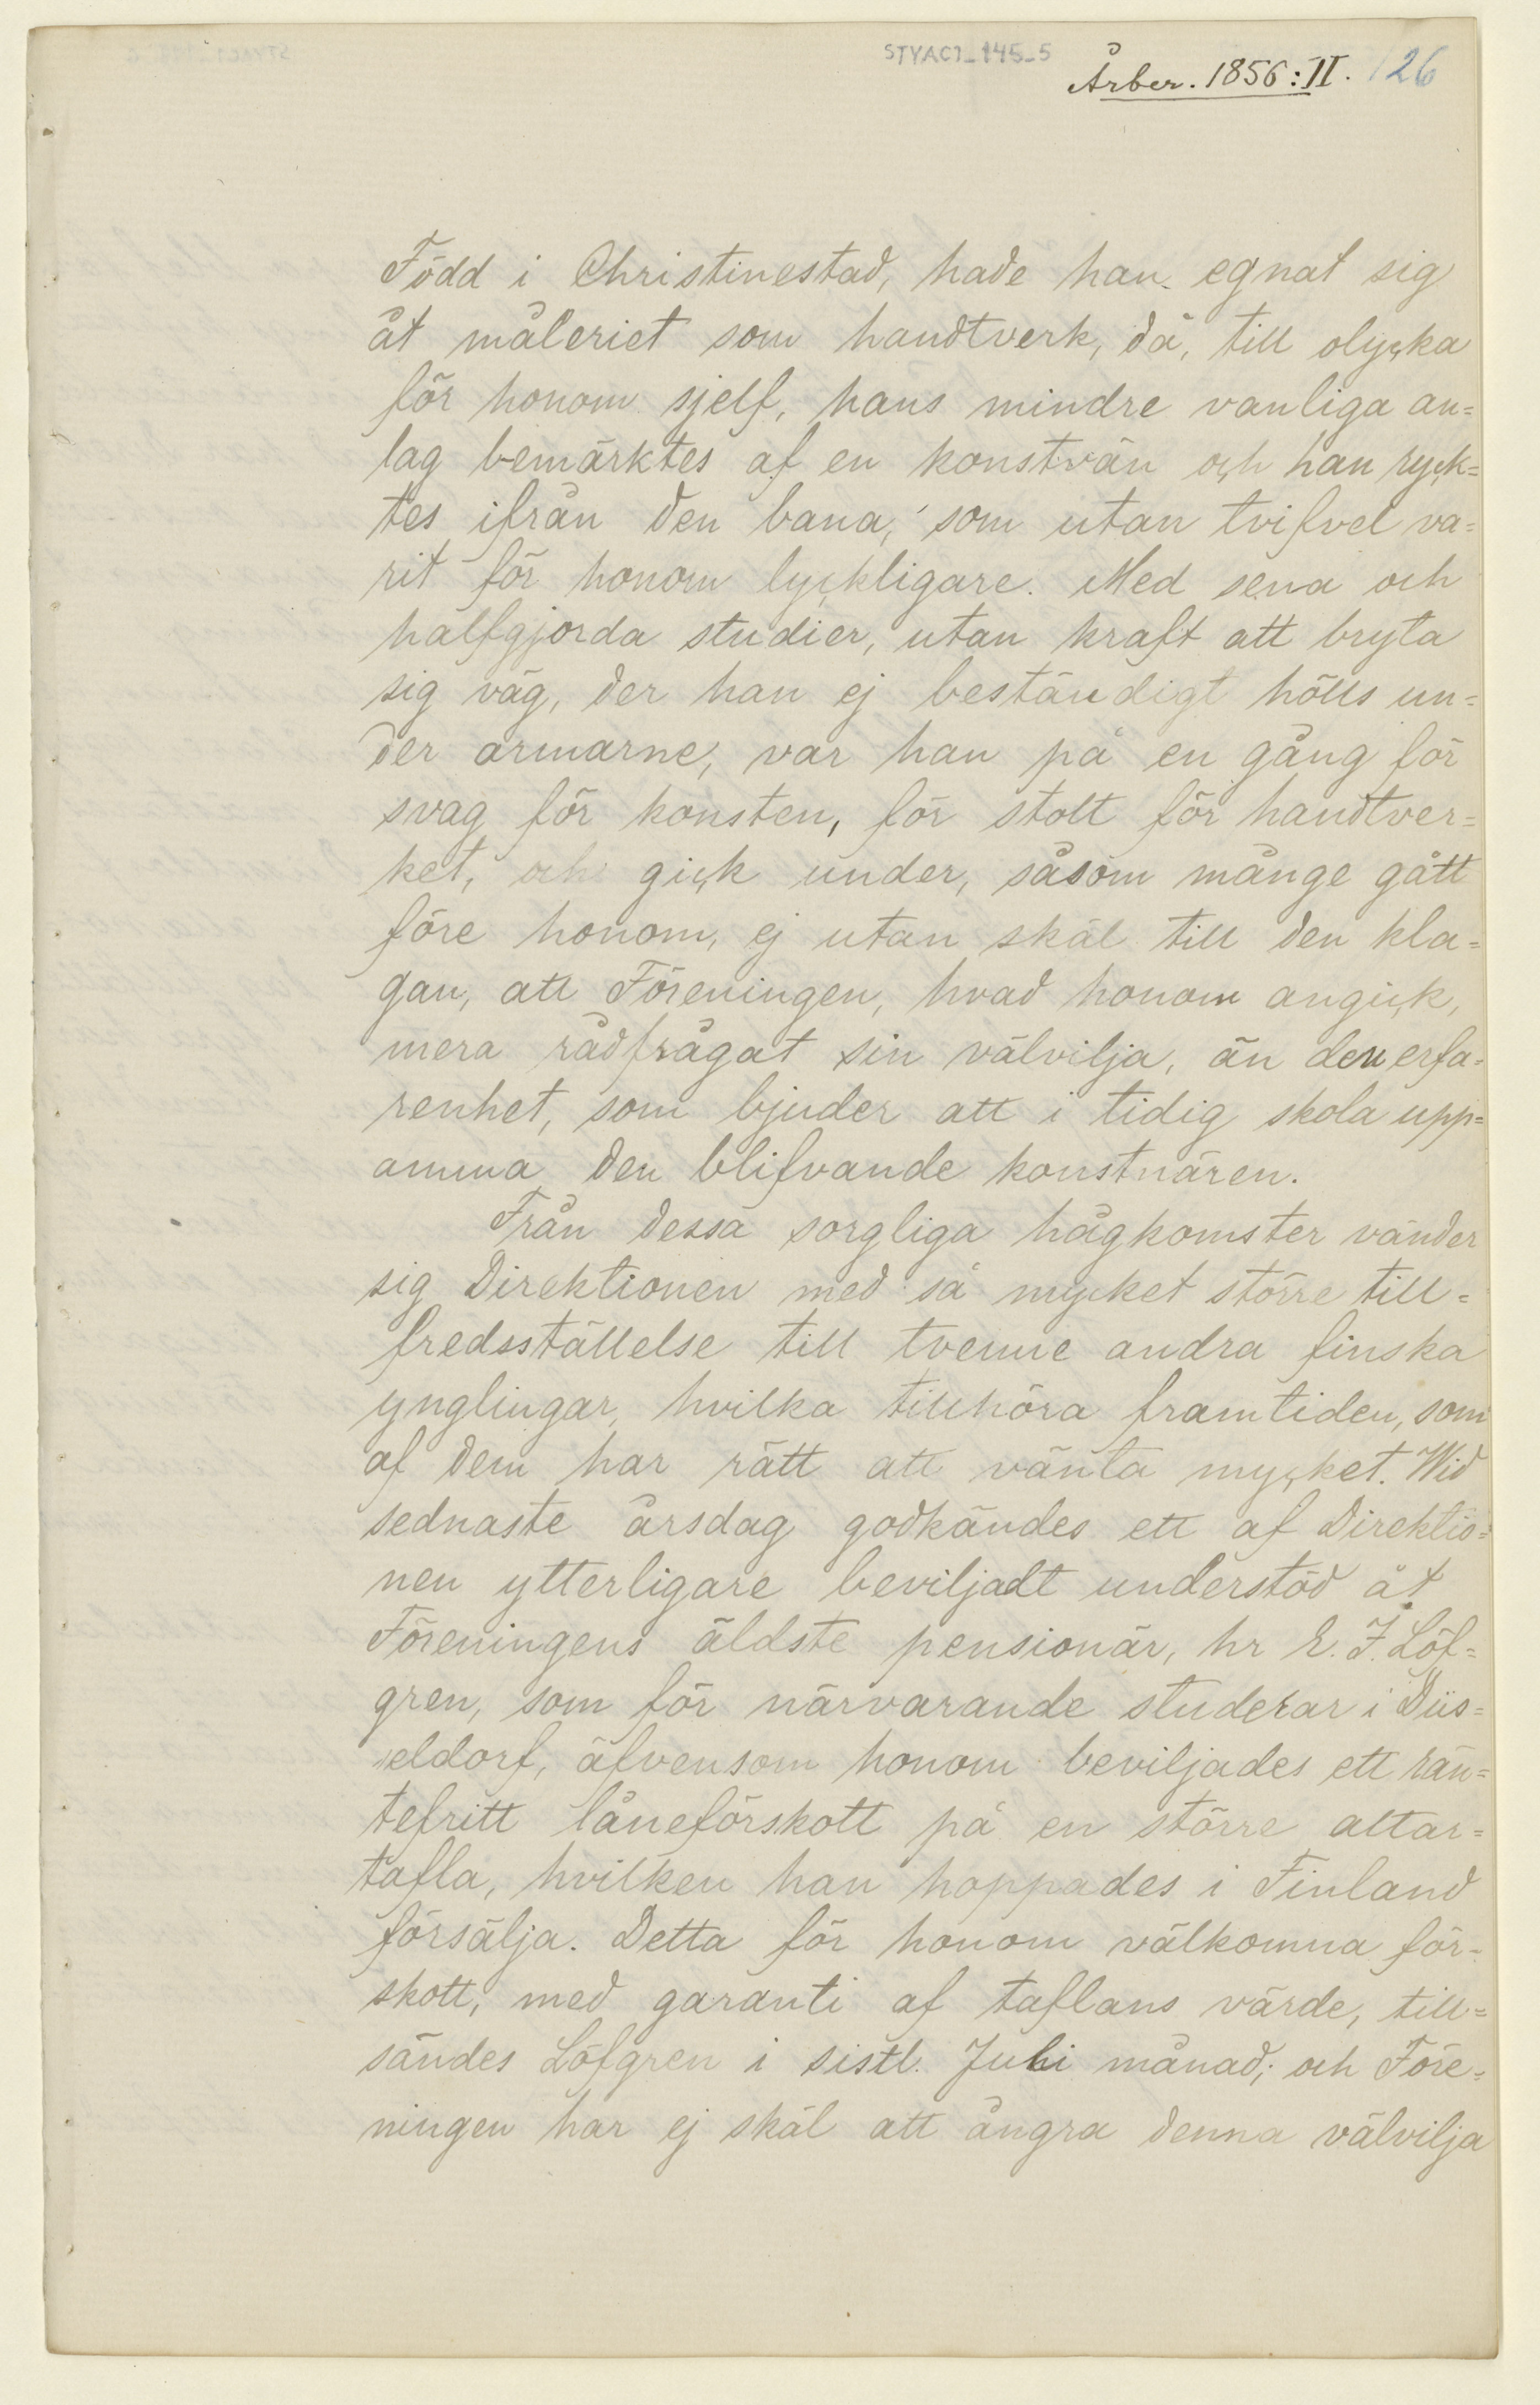 STYAC1_145_5
Årber. 1856:II. 126
Född i Christinestad, hade han egnat sig
åt måleriet som handtverk, då, till olycka
för honom sjelf, hans mindre vanliga an=
lag bemärktes af en konstvän och han ryck=
tes ifrån den bana, som utan tvifvel va=
rit för honom lyckligare. Med sena och
halfgjorda studier, utan kraft att bryta
sig väg, der han ej beständigt hölls un=
der armarne, var han på en gång för
svag för konsten, för stolt för handtver=
ket, och gick under, såsom månge gått
före honom, ej utan skäl till den kla=
gan, att Föreningen, hvad honom angick,
mera rådfrågat sin välvilja, än den erfa=
renhet, som bjuder att i tidig skola upp=
amma den blifvande konstnären.
Från dessa sorgliga hågkomster vänder
sig Direktionen med så mycket större till=
fredsställelse till tvenne andra finska
ynglingar, hvilka tillhöra framtiden, som
af dem har rätt att vänta mycket. Wid
sednaste årsdag godkändes ett af Direktio=
nen ytterligare beviljadt understöd åt
Föreningens äldste pensionär, hr E. J. Löf=
gren, som för närvarande studerar i Düs=
seldorf, äfvensom honom beviljades ett rän=
tefritt låneförskott på en större altar=
tafla, hvilken han hoppades i Finland
försälja. Detta för honom välkomna för=
skott, med garanti af taflans värde, till=
sändes Löfgren i sistl. Juli månad; och Före=
ningen har ej skäl att ångra denna välvilja